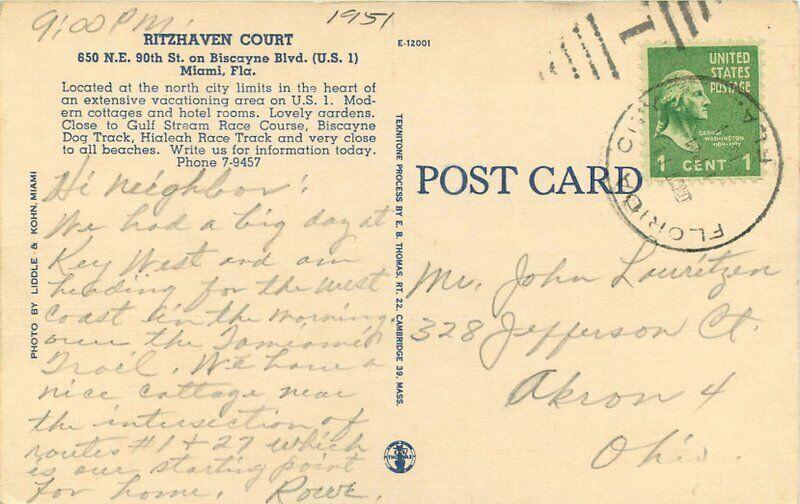 9:00 PM.
1951
RITZHAVEN COURT
650 N.E. 90th St. on Biscayne Blvd. (U.S. 1)
Miami, Fla.
Located at the north city limits in the heart of
an extensive vacationing area on U.S. 1. Mod-
ern cottages and hotel rooms. Lovely gardens.
Close to Gulf Stream Race Course, Biscayne
Dog Track, Hialeah Race Track and very close
to all beaches. Write us for information today.
Phone 7-9457
Hi Neighbor!
We had a big day at
Key West and am
heading for the West
Coast in the morning
over the Tamiami
Trail. We have a
nice cottage near
the intersection of
routes #1 + 27 which
is our starting point
for home. Rowe.
PHOTO BY LIDDLE & KOHN, MIAMI
E-12001
TEKNITONE PROCESS BY E. B. THOMAS, RT. 22, CAMBRIDGE 39, MASS.
THOMAS
POST CARD
UNITED
STATES
POSTAGE
GEORGE
WASHINGTON
1 CENT 1
FLORIDA CITY
FLA.
Mr. John Lauritzen
328 Jefferson Ct.
Akron 4
Ohio.